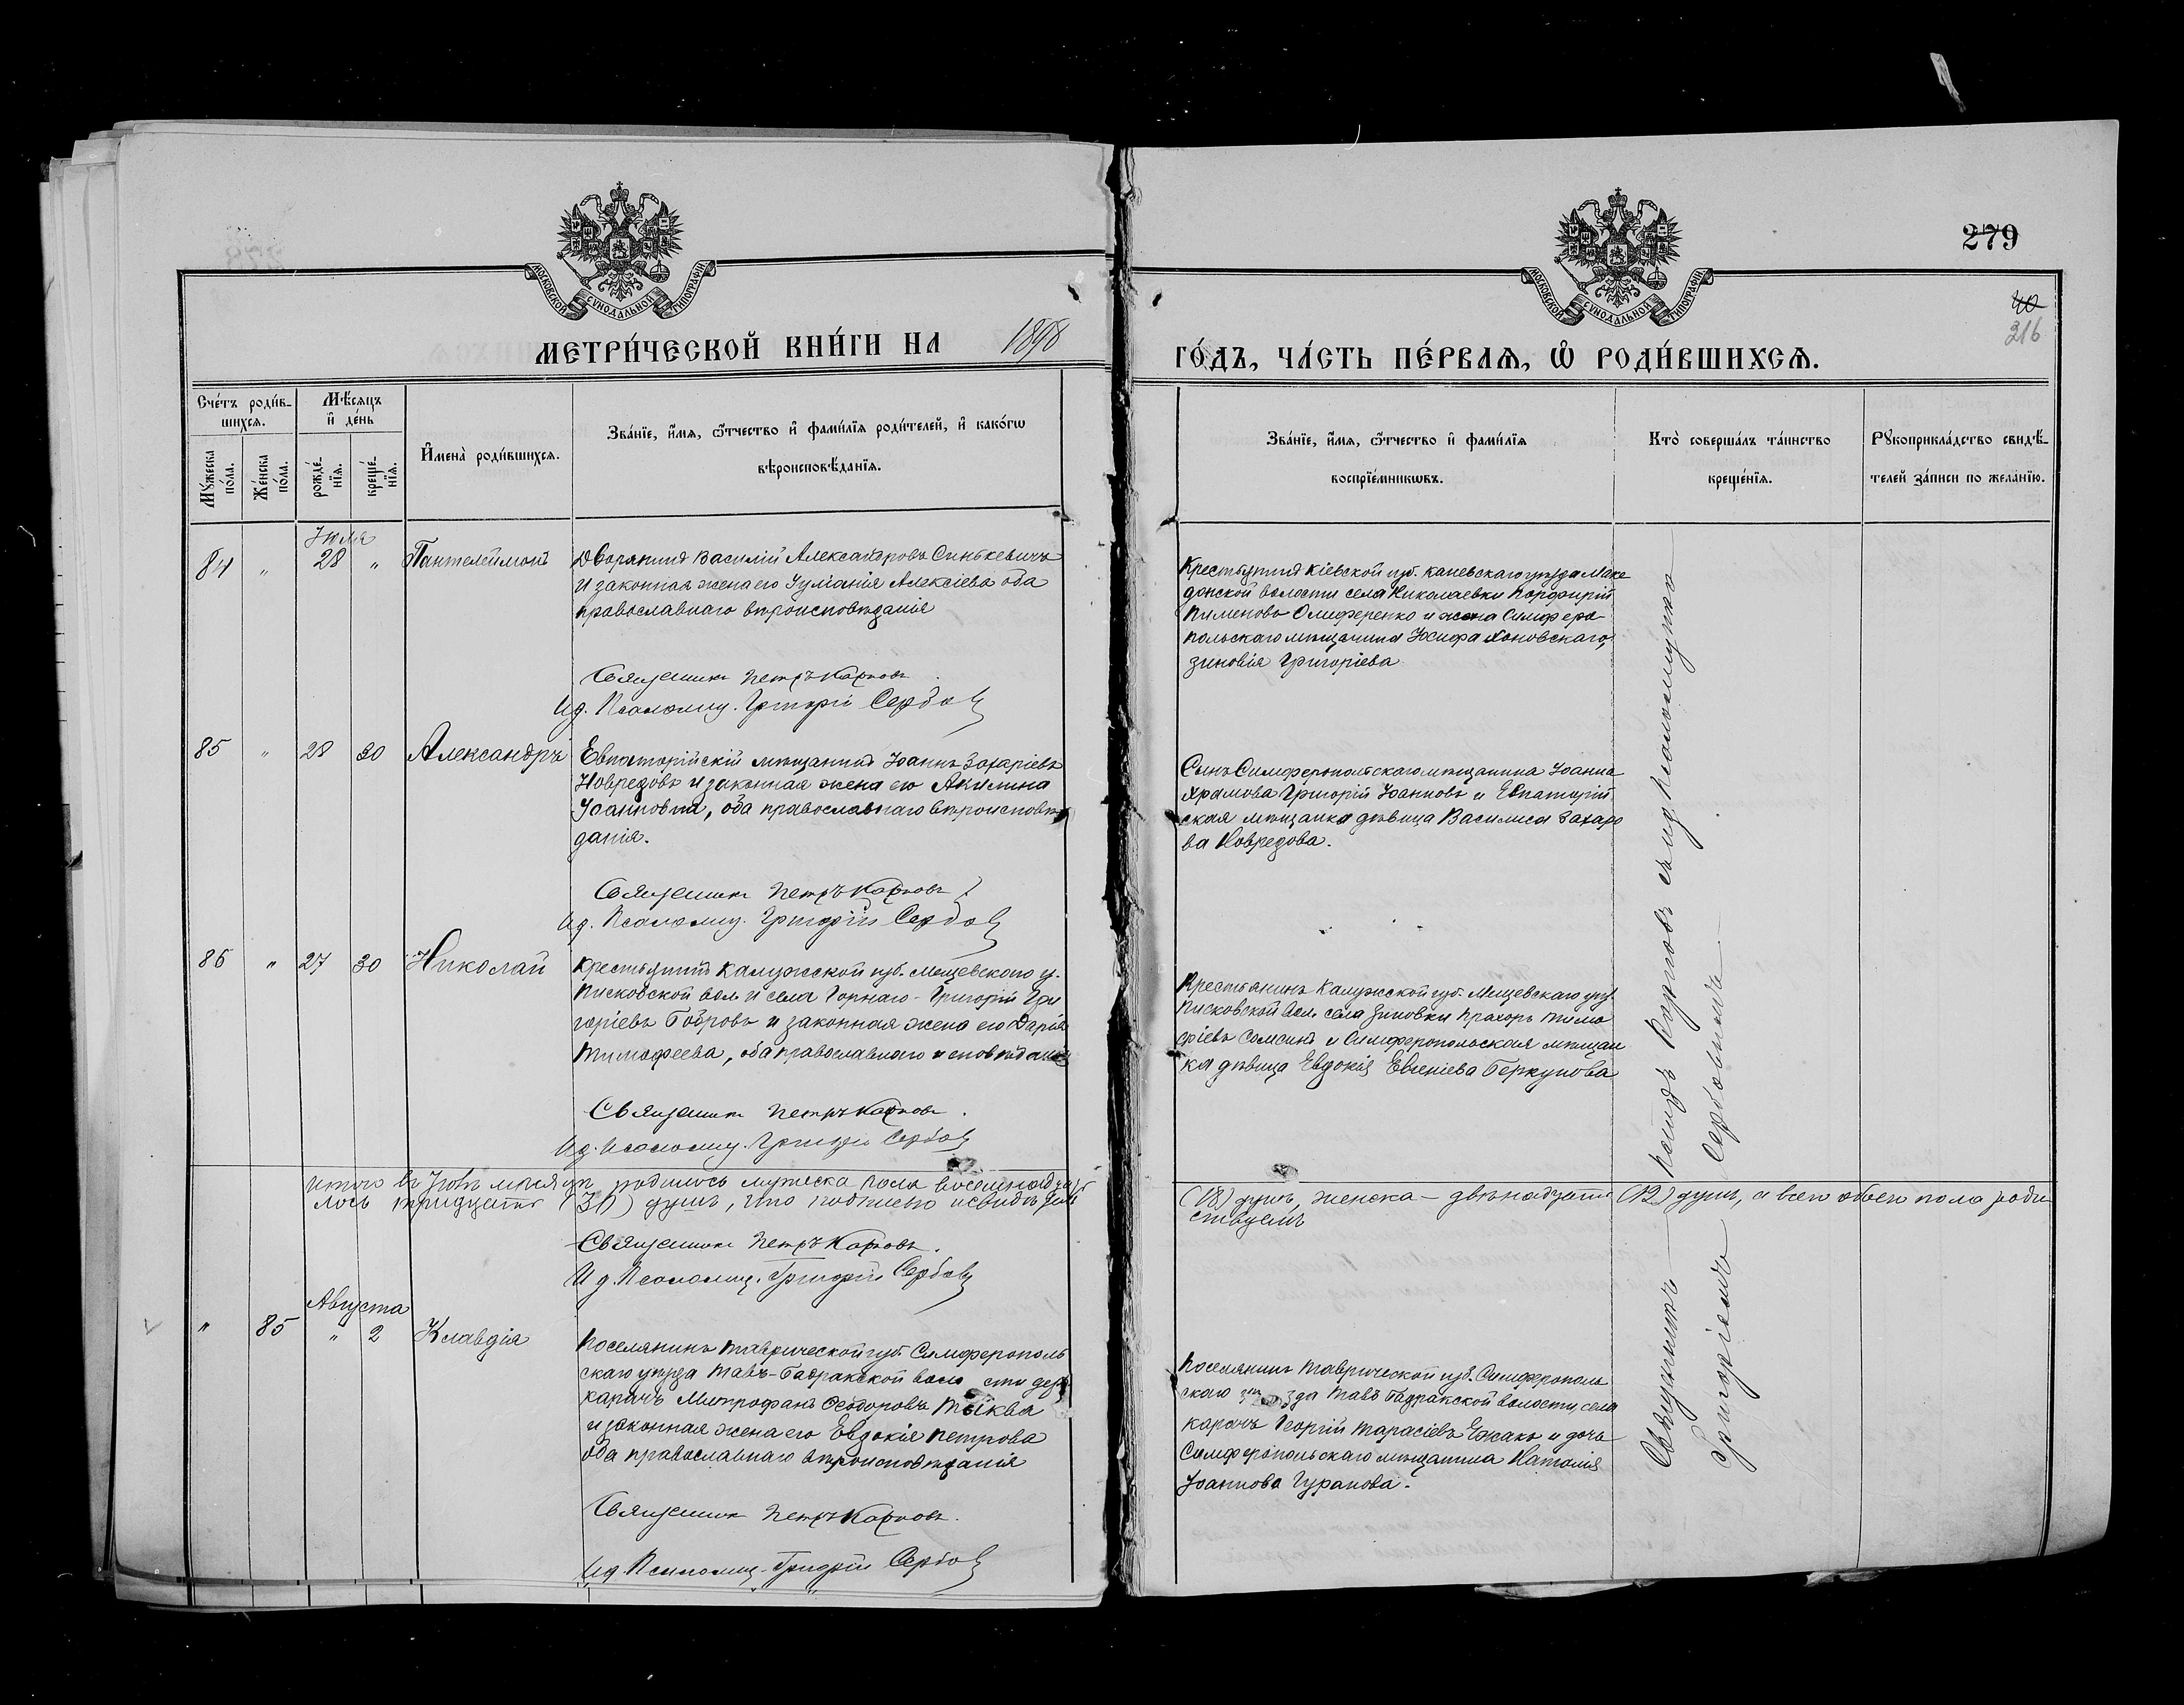 279
40
316
МОСКОВСКОЙ СѴНОДАЛЬНОЙ ТИПОГРАФІИ
МОСКОВСКОЙ СѴНОДАЛЬНОЙ ТИПОГРАФІИ
МЕТРИ́ЧЕСКОЙ КНИ́ГИ НА 1898 ГО́ДЪ, ЧА́СТЬ ПЕ́РВАѦ, Ѡ҆ РОДИ́ВШИХСѦ.
Сче́тъ роди́в-
шихсѧ.
Мꙋ́жеска по́ла.
Же́нска по́ла.
Мѣ́сѧцъ и҆ де́нь
рожде́-
нїѧ.
креще́-
нїѧ.
И҆мена̀ роди́вшихсѧ.
Зва́нїе, и҆́мѧ, ѻ҆́тчество и҆ фамѝлїѧ роди́телей, и҆ како́гѡ
вѣроисповѣ́данїѧ.
Зва́нїе, и҆́мѧ, ѻ҆́тчество и҆ фамѝлїѧ
воспрїе́мникѡвъ.
Кто̀ соверша́лъ та́инство
креще́нїѧ.
Рꙋкоприкла́дство свидѣ́-
телей за́писи по жела́нїю.
Іюля
84 „ 28 „ Пантелеймонъ
Дворянинъ Василій Александровъ Синькевичъ
и законная жена его Іуліанія Алексіева оба
православнаго вѣроисповѣданія
Священникъ Петръ Карповъ.
И.д. Псаломщ. Григорій Сербовъ
Крестьянинъ Кіевской губ. Каневскаго уѣзда Маке
донской волости села Николаевки Порфирій
Пименовъ Олиференко и жена Симферо-
польскаго мѣщанина Іосифа Яновскаго,
Зиновія Григоріева
85 „ 28 30 Александръ
Евпаторійскій мѣщанинъ Іоаннъ Захаріевъ
Новредовъ и законная жена его Акилина
Іоаннова, оба православнаго вѣроисповѣ
данія.
Священникъ Петръ Карповъ
И.д. Псаломщ. Григорій Сербовъ
Сынъ Симферопольскаго мѣщанина Іоанна
Храмова Григорій Іоанновъ и Евпаторій
ская мѣщанка дѣвица Василиса Захаро
ва Новредова.
86 „ 27 30 Николай
Крестьянинъ Калужской губ. Мещевскаго у.
Писковской вол. и села Горнаго - Григорій Гри
горіевъ Бобровъ и законная жена его Дарія
Тимофеева, оба православнаго исповѣданія
Священникъ Петръ Карповъ.
И.д. Псаломщ. Григорій Сербовъ
Крестьянинъ Калужской губ. Мещевскаго уѣз.
Писковской вол. села Зиновки Прохоръ Тимо
фіевъ Самсинъ и Симферопольская мѣщан
ка дѣвица Евдокія Евгеніева Беркунова
Итого въ Іюлѣ мѣсяцѣ родилось мужеска пола восемнадцать (18) душъ, женска - двѣнадцать (12) душъ, а всего обоего пола роди
лось тридцать (30) душъ, что подписью свидѣтель
ствуемъ
Священникъ Петръ Карповъ.
И.д. Псаломщ. Григорій Сербовъ
Августа
„ 85 „ 2 Клавдія
Поселянинъ Таврической губ. Симферополь
скаго уѣзда Тавъ-Бадракской воло сти дер.
Карачъ Митрофанъ Ѳеодоровъ Тыква
и законная жена его Евдокія Петрова
оба православнаго вѣроисповѣданія
Священникъ Петръ Карповъ.
И.д. Псаломщ. Григорій Сербовъ
Поселянинъ Таврической губ. Симферополь
скаго уѣзда Тавъ Бадракской волости, села
Карачъ Георгій Тарасіевъ Ежакъ и дочь
Симферопольскаго мѣщанина Наталія
Іоаннова Гуранова.
Священникъ Петръ Карповъ съ и.д. псаломщика
Григоріемъ Сербовымъ